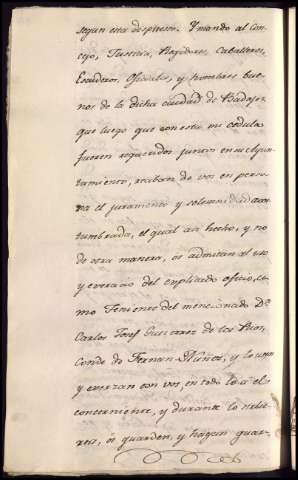 segun esta despuesto. Y mando al Con-
cejo, Justicia, Regidores, Caballeros,
Escuderos, Oficiales, y hombres bue-
nos de la dicha ciudad de Badajoz
que luego que con esta mi cedula
fueren requeridos juntos en su Ayun-
tamiento, reciban de vos en perso-
na el juramento y solemnidad acos-
tumbrada, el qual asi hecho, y no
de otra manera, os admitan al uso
y exercicio del explicado oficio, co-
mo Teniente del mencionado Dn.
Carlos Josef Gutierrez de los Rios,
Conde de Fernan-Nuñez, y lo usen
y exerzan con vos en todo lo a el
concerniente, y durante lo
os guarden, y hagan guar-